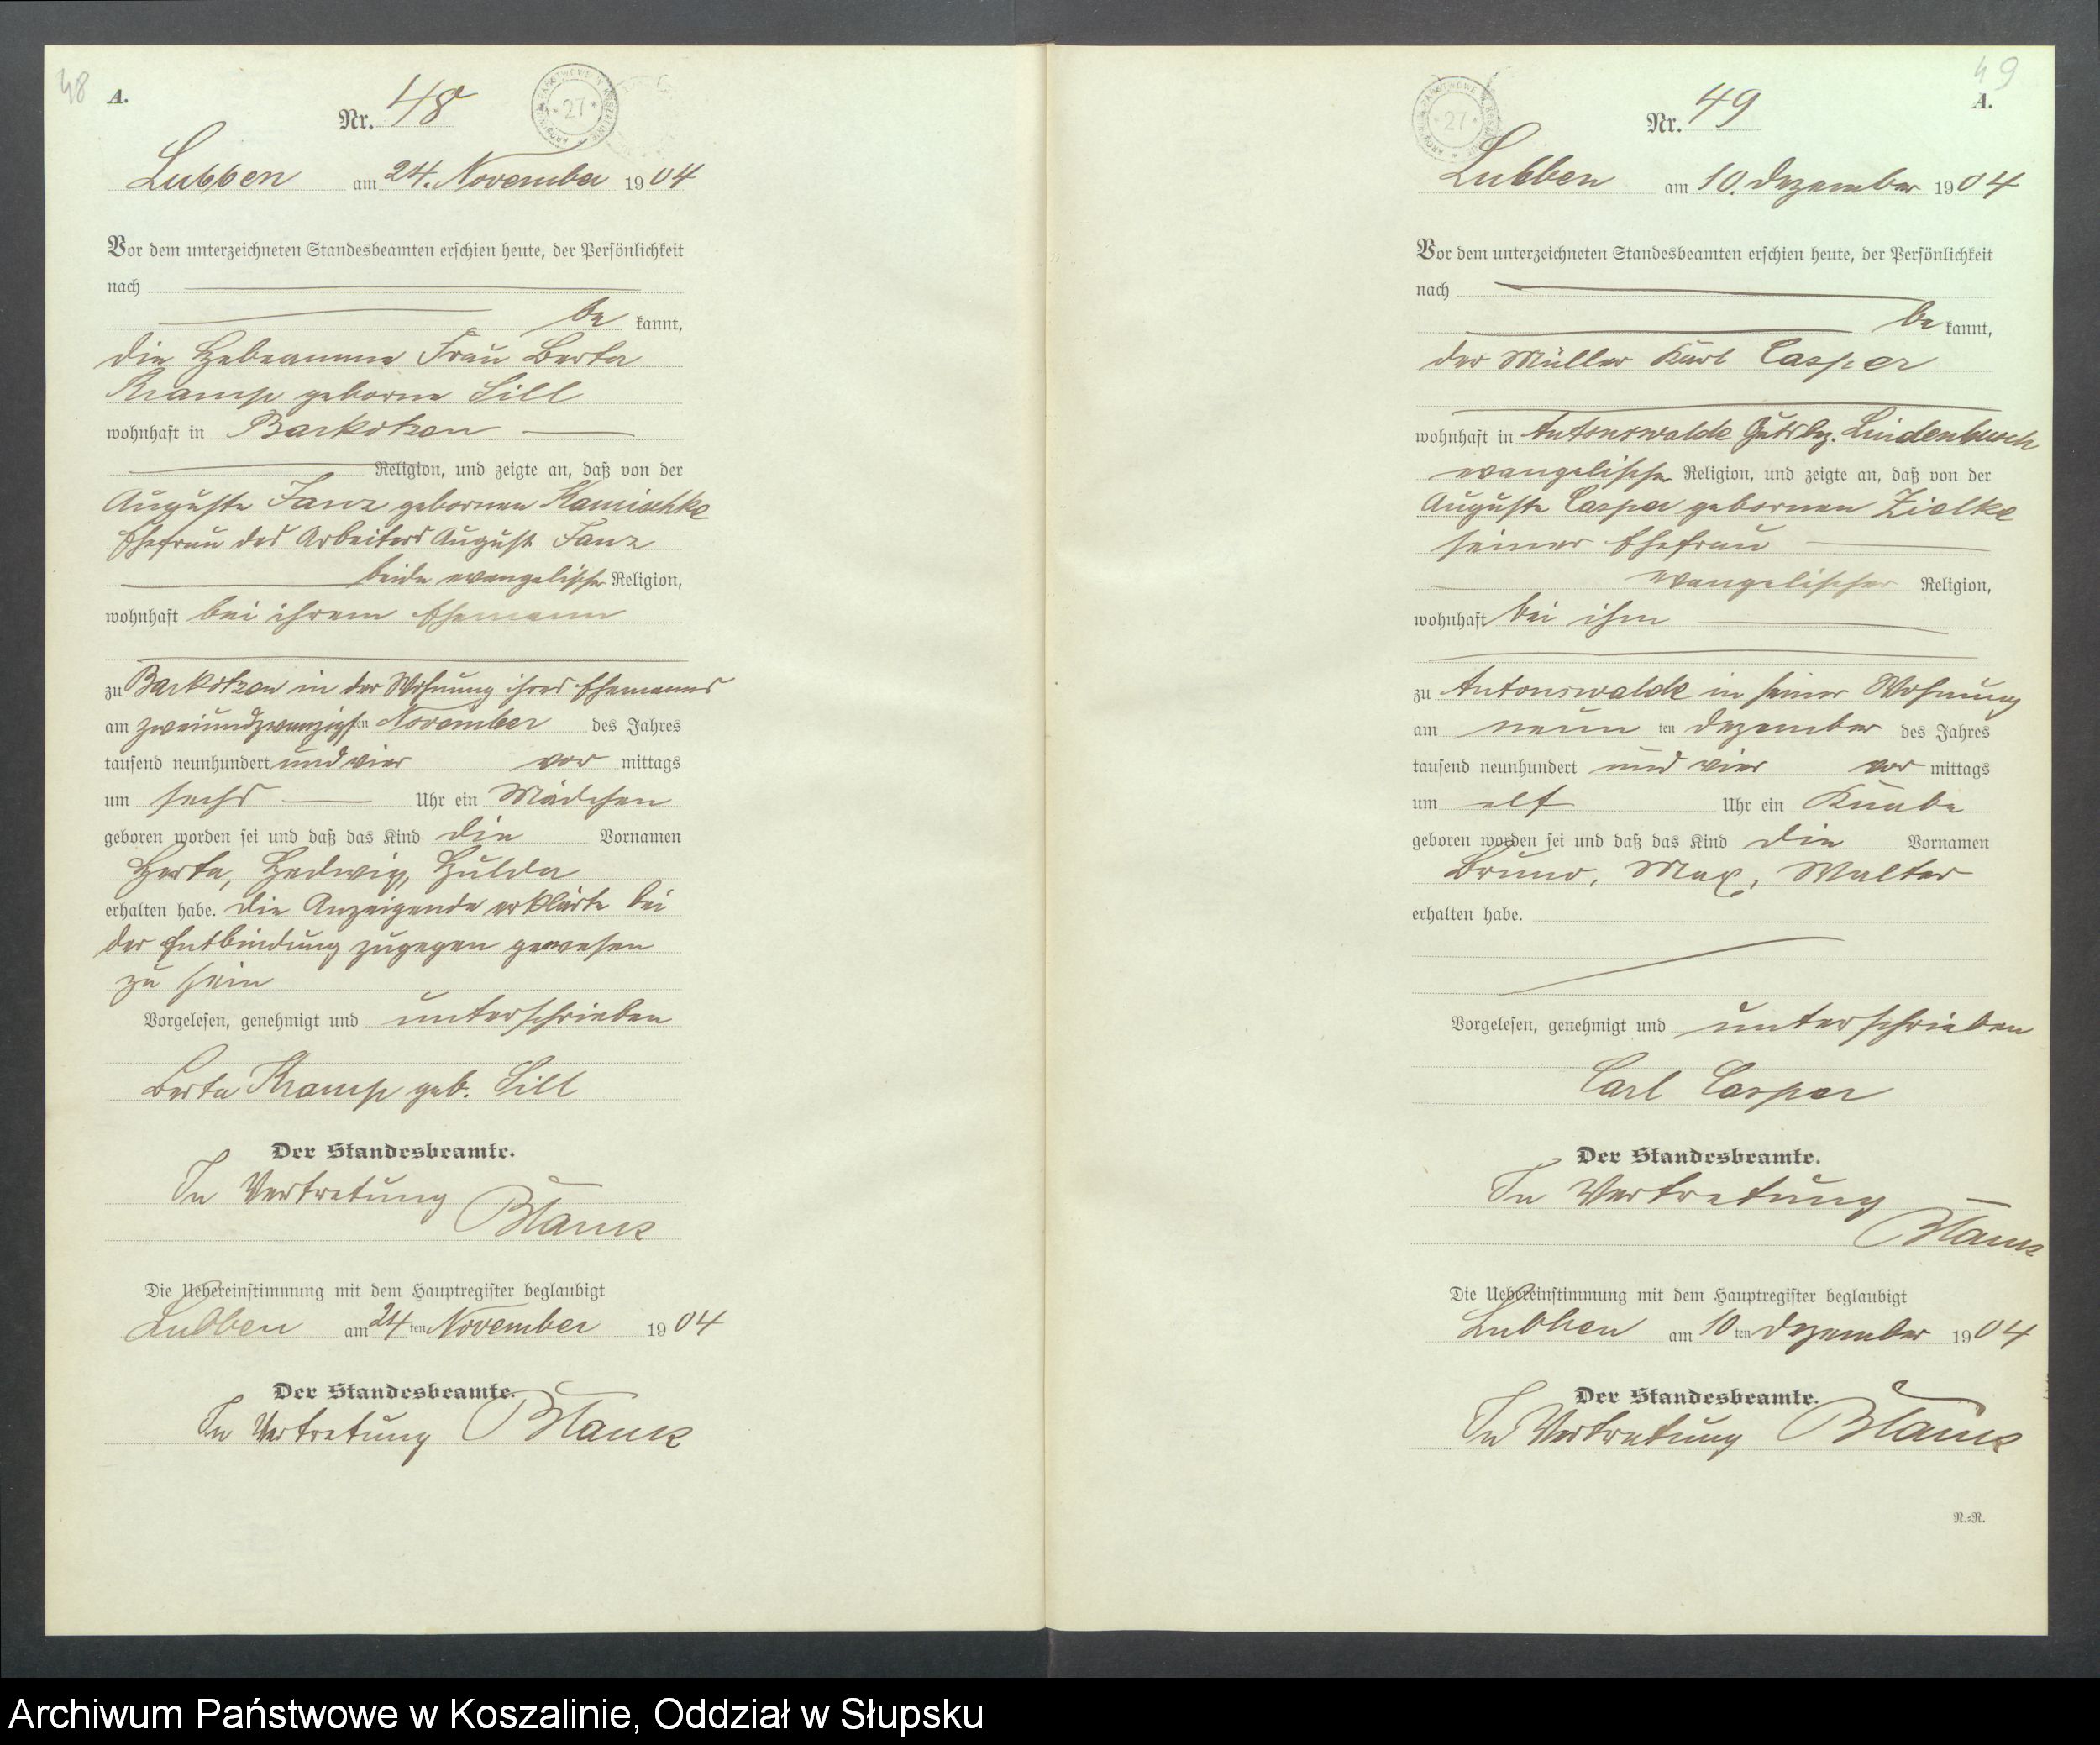 48
A.
Nr. 48
ARCHIWUM PAŃSTWOWE W KOSZALINIE
* 27 *
Lubben am 24. November 1904
Vor dem unterzeichneten Standesbeamten erschien heute, der Persönlichkeit
nach
be kannt,
die Hebeamme Frau Berta
Kramp geborne Sill
wohnhaft in Barkotzen
Religion, und zeigte an, daß von der
Auguste Janz gebornen Kamischke
Ehefrau des Arbeiters August Janz
beide evangelischer Religion,
wohnhaft bei ihrem Ehemann
zu Barkotzen in der Wohnung ihres Ehemannes
am zweiundzwanzigsten November des Jahres
tausend neunhundert und vier vor mittags
um sechs Uhr ein Mädchen
geboren worden sei und daß das Kind die Vornamen
Herta, Hedwig, Hulda
erhalten habe. Die Anzeigende erklärte bei
der Entbindung zugegen gewesen
zu sein
Vorgelesen, genehmigt und unterschrieben
Berta Kramp geb. Sill
Der Standesbeamte.
In Vertretung
Die Uebereinstimmung mit dem Hauptregister beglaubigt
Lubben am 24 ten November 1904
Der Standesbeamte.
In Vertretung
49
A.
Nr. 49
ARCHIWUM PAŃSTWOWE W KOSZALINIE
* 27 *
Lubben am 10. Dezember 1904
Vor dem unterzeichneten Standesbeamten erschien heute, der Persönlichkeit
nach
be kannt,
der Müller Karl Casper
wohnhaft in Antonswalde Gutsbez. Lindenbusch
evangelischer Religion, und zeigte an, daß von der
Auguste Casper gebornen Zielke
seiner Ehefrau
evangelischer Religion,
wohnhaft bei ihm
zu Antonswalde in seiner Wohnung
am neun ten Dezember des Jahres
tausend neunhundert und vier vor mittags
um elf Uhr ein Knabe
geboren worden sei und daß das Kind die Vornamen
Bruno, Max, Walter
erhalten habe.
Vorgelesen, genehmigt und unterschrieben
Carl Casper
Der Standesbeamte.
In Vertretung
Die Uebereinstimmung mit dem Hauptregister beglaubigt
Lubben am 10 ten Dezember 1904
Der Standesbeamte.
In Vertretung
N.=R.
Archiwum Państwowe w Koszalinie, Oddział w Słupsku